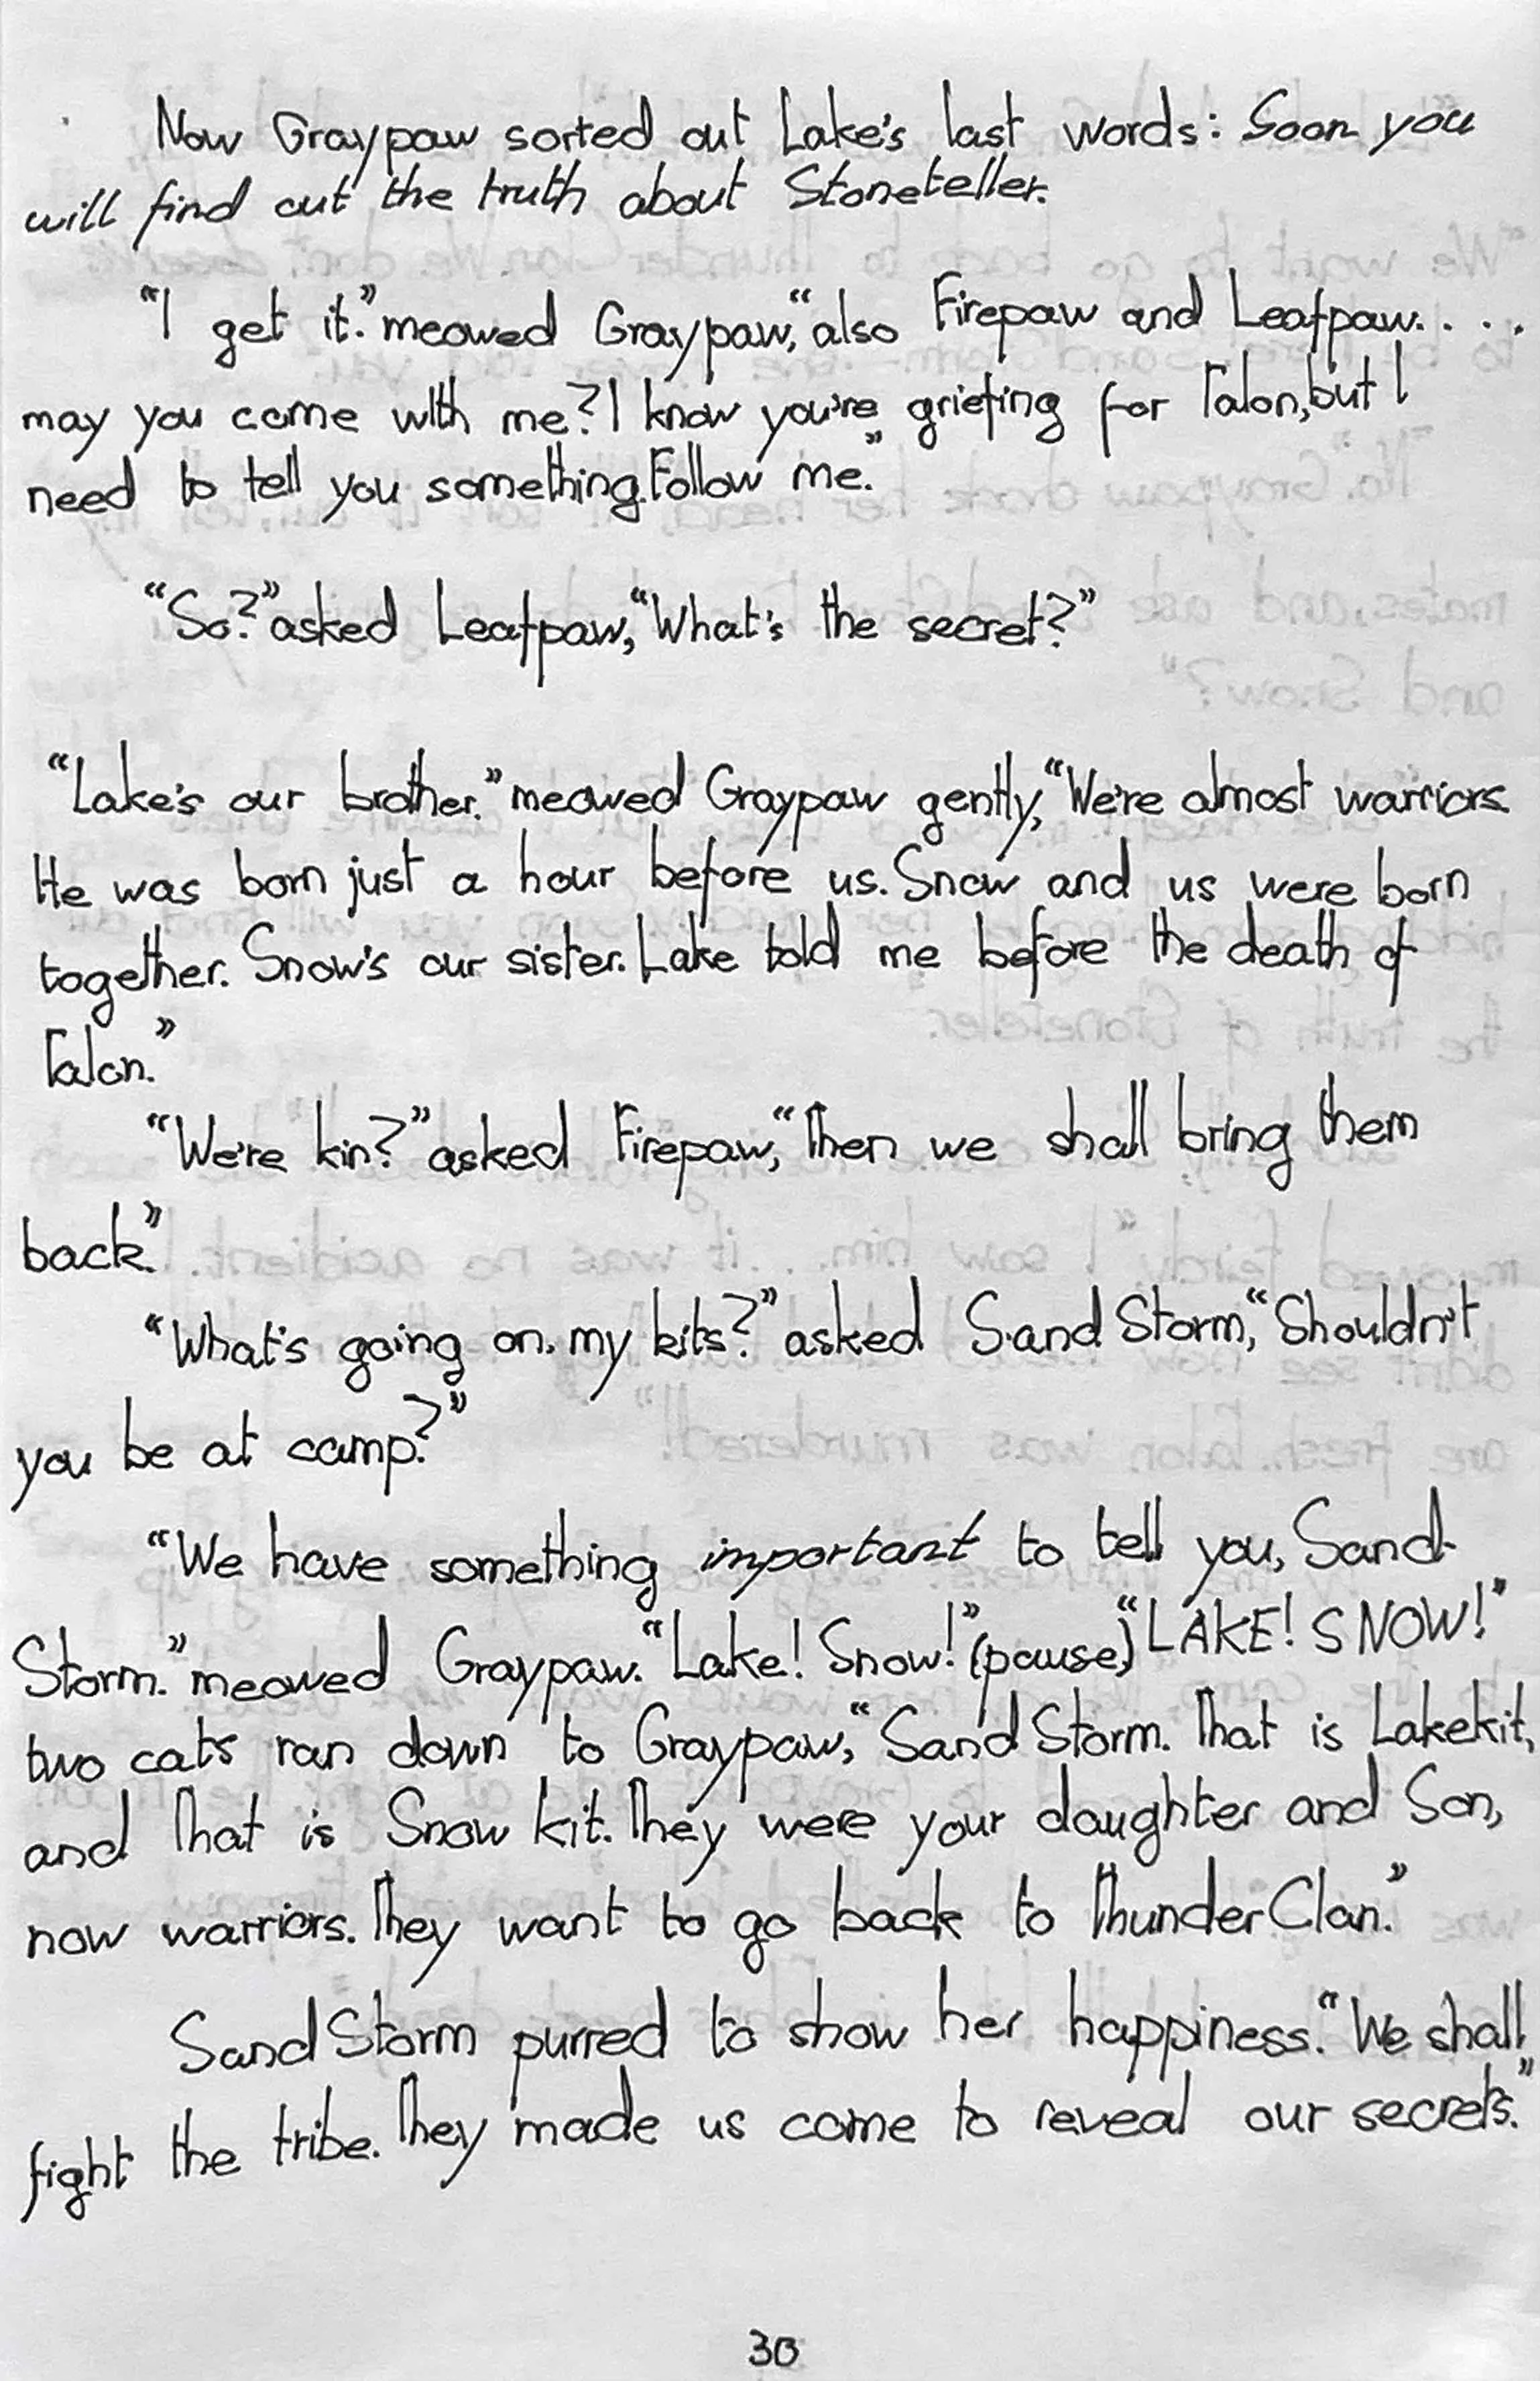 Now Graypaw sorted out Lake's last words: Soon you
will find out the truth about Stoneteller.
"I get it." meowed Graypaw, "also Firepaw and Leafpaw. . . .
may you come with me? I know you're griefing for Talon, but I
need to tell you something. Follow me."
"So?" asked Leafpaw, "What's the secret?"
"Lake's our brother." meowed Graypaw gently, "We're almost warriors.
He was born just a hour before us. Snow and us were born
together. Snow's our sister. Lake told me before the death of
Talon."
"We're kin?" asked Firepaw, "Then we shall bring them
back."
"What's going on, my kits?" asked SandStorm, "Shouldn't
you be at camp?"
"We have something important to tell you, Sand-
Storm." meowed Graypaw. "Lake! Snow!" (pause) "LAKE! SNOW!"
two cats ran down to Graypaw, "SandStorm. That is Lakekit,
and That is Snow kit. They were your daughter and Son,
now warriors. They want to go back to ThunderClan."
SandStorm purred to show her happiness. "We shall
fight the tribe. They made us come to reveal our secrets."
30